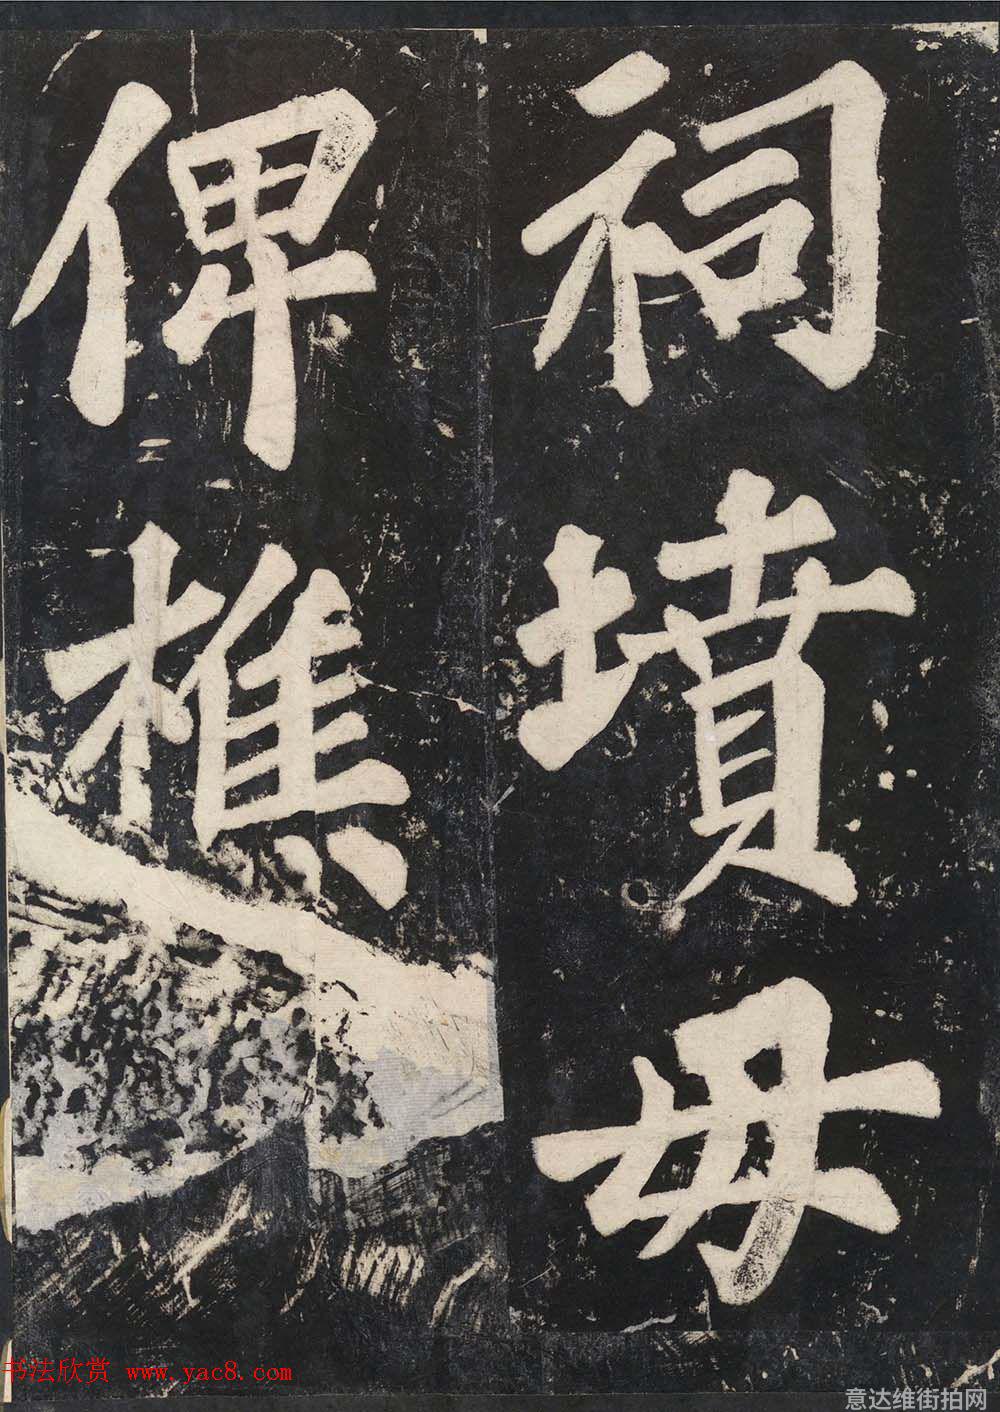 祠墳毋
俾樵
书法欣赏 www.yac8.com
意达维街拍网